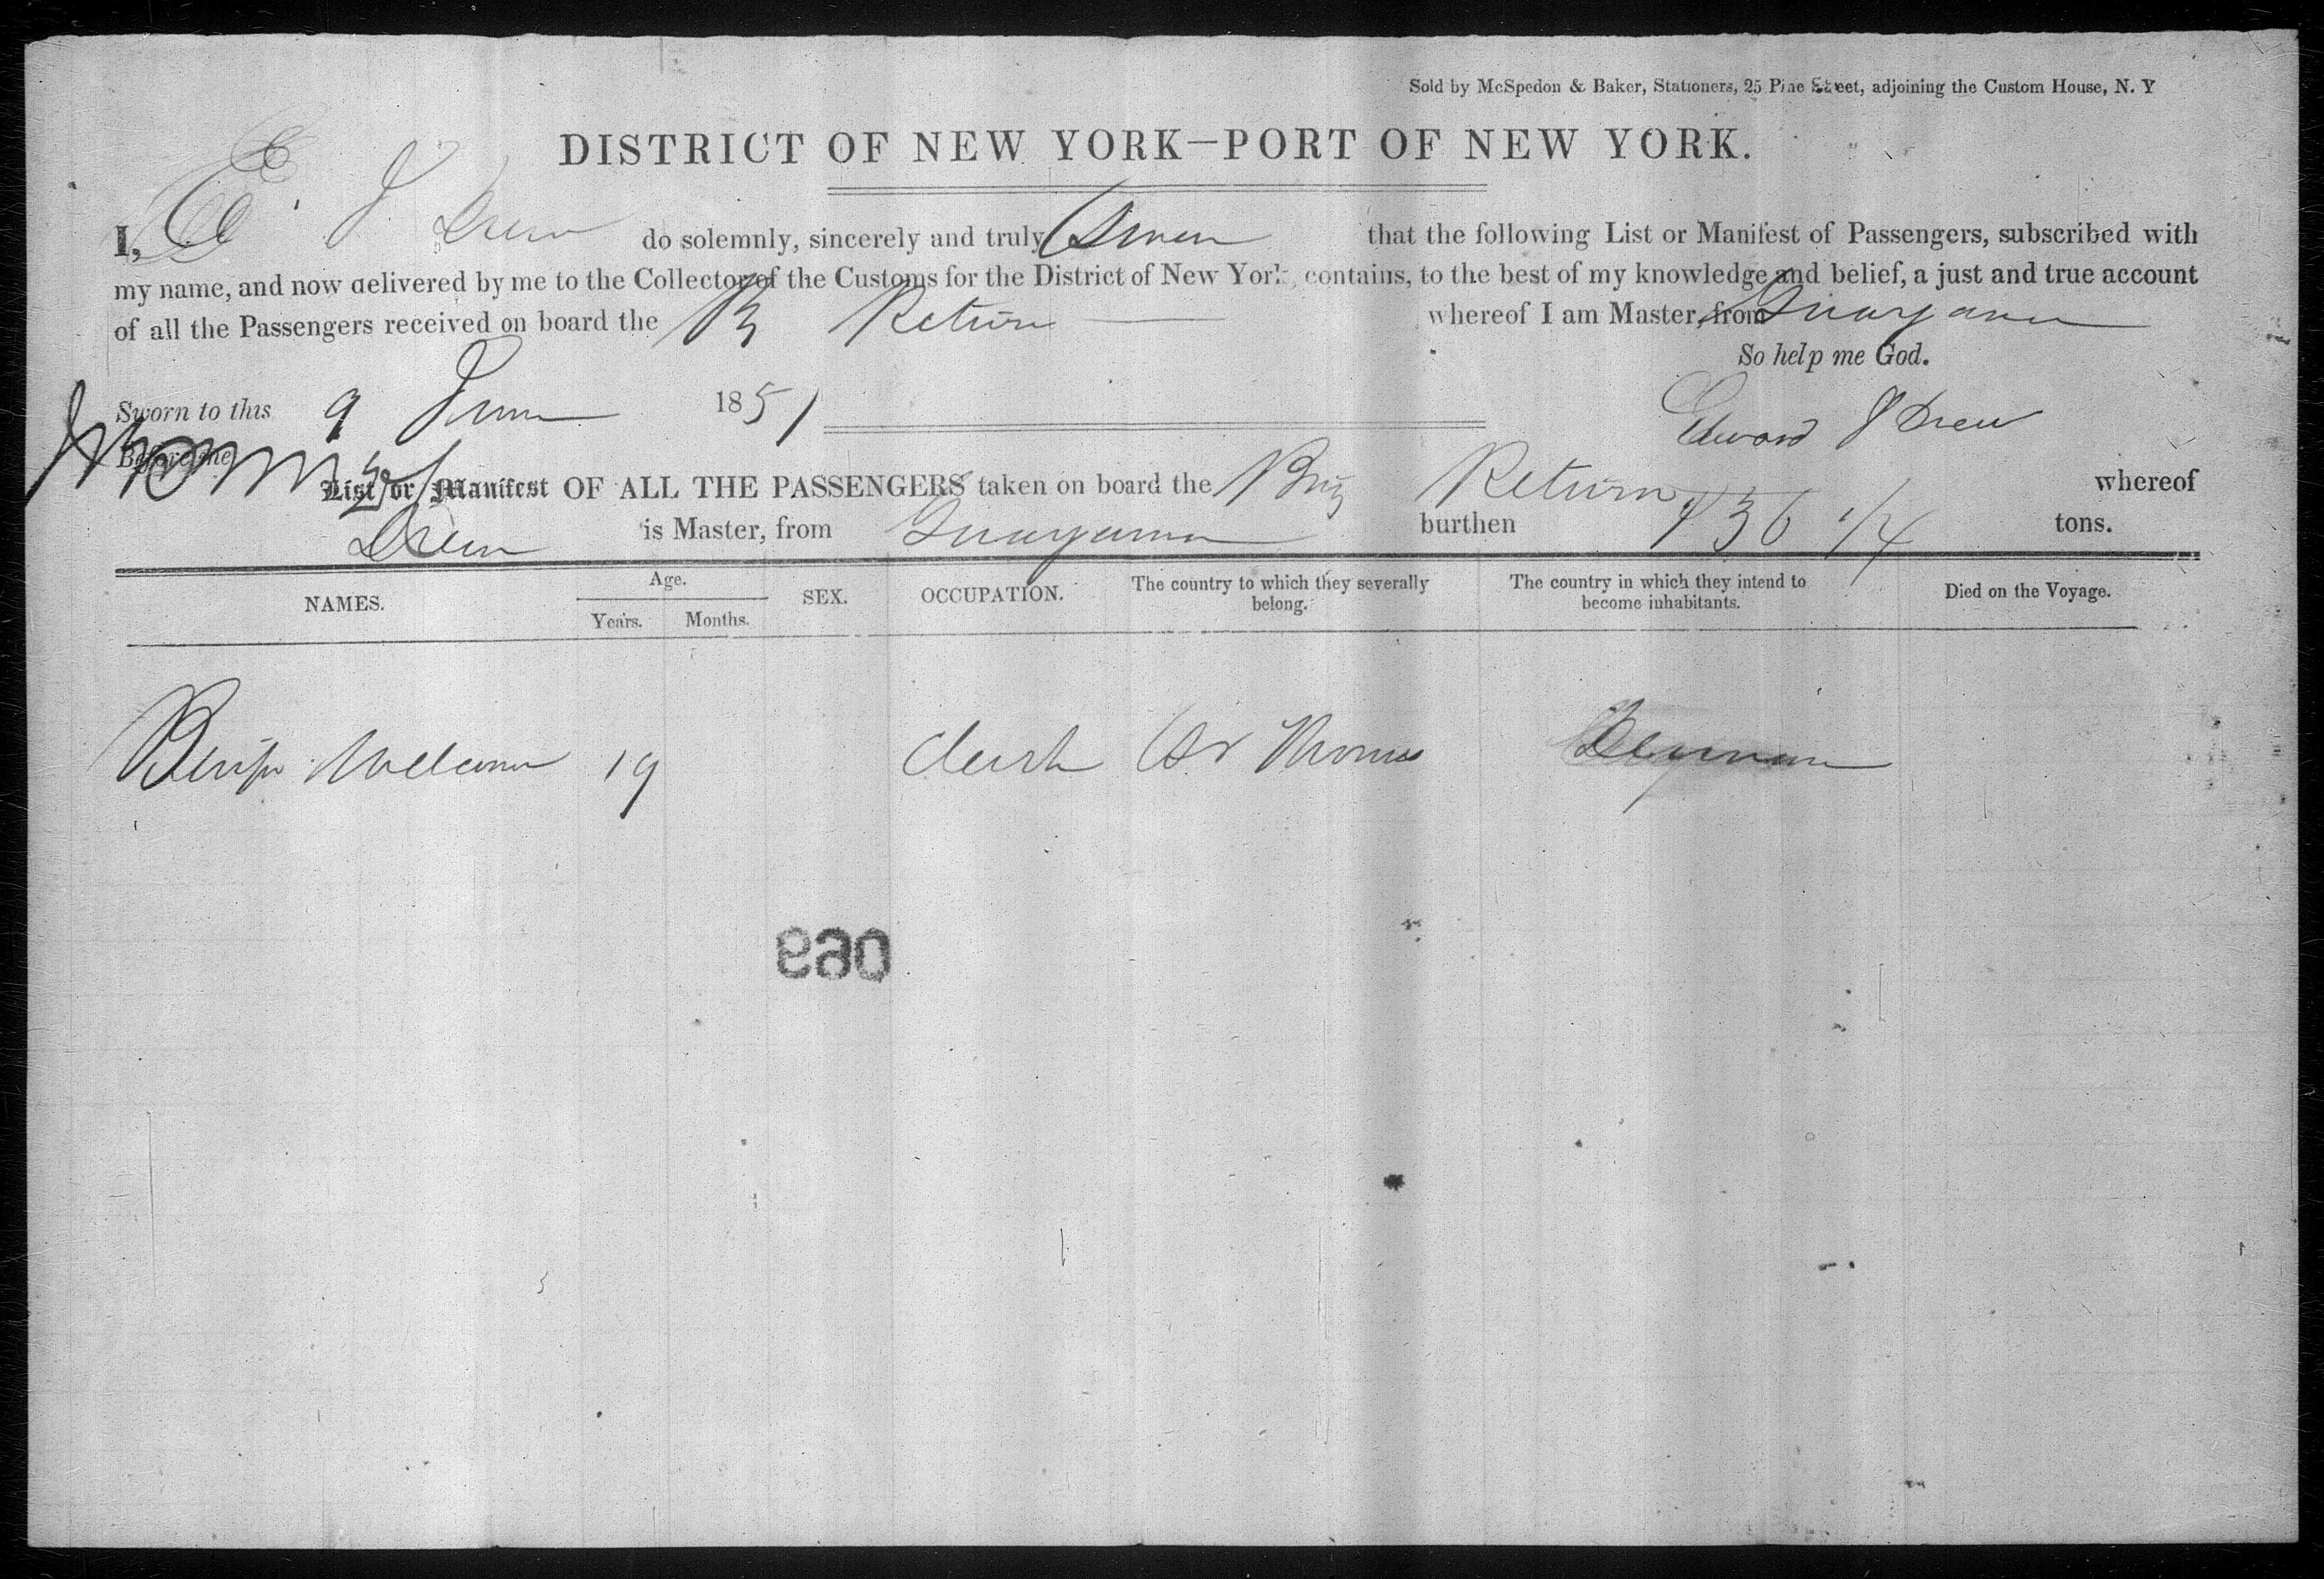 Sold by McSpedon & Baker, Stationers, 25 Pine Street, adjoining the Custom House, N. Y
DISTRICT OF NEW YORK—PORT OF NEW YORK.
I, E. J Drew do solemnly, sincerely and truly Swear that the following List or Manifest of Passengers, subscribed with
my name, and now delivered by me to the Collector of the Customs for the District of New York, contains, to the best of my knowledge and belief, a just and true account
of all the Passengers received on board the B Return whereof I am Master, from Guayama
So help me God.
Sworn to this 9 June 1851
Edward J Drew
Before me
List or Manifest OF ALL THE PASSENGERS taken on board the Brig Return whereof
Drew is Master, from Guayama burthen 136 tons.
NAMES. Age. SEX. OCCUPATION. The country to which they severally belong. The country in which they intend to become inhabitants. Died on the Voyage.
Years. Months.
19 Clerk St Thomas
069